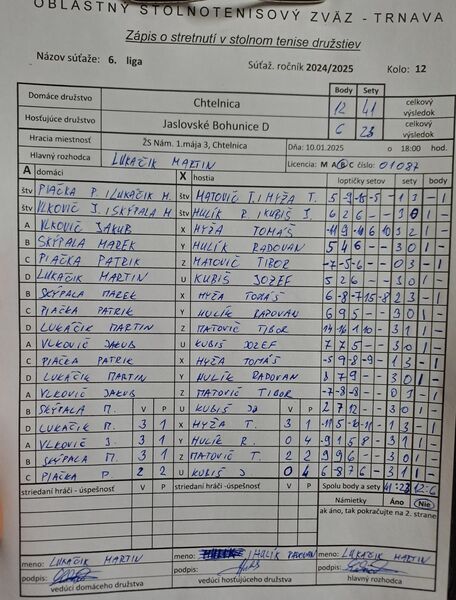 OBLASTNÝ STOLNOTENISOVÝ ZVÄZ - TRNAVA
Zápis o stretnutí v stolnom tenise družstiev
Názov súťaže: 6. liga Súťaž. ročník 2024/2025 Kolo: 12
Body Sety
Domáce družstvo Chtelnica 12 41 celkový výsledok
Hosťujúce družstvo Jaslovské Bohunice D 6 23 celkový výsledok
Hracia miestnosť ZŠ Nám. 1.mája 3, Chtelnica Dňa: 10.01.2025 o 18:00 hod.
Hlavný rozhodca LUKAČIK MARTIN Licencia: M A B C číslo: 01087
A domáci X hostia loptičky setov sety body
štv PIAČKA P. / LUKAČIK M. štv MATOVIČ T. / HYŽA T. 5 -9 -15 -5 - 1 3 - 1
štv VLKOVIČ J. / SKÝPALA M štv HULÍK R. / KUBIŠ J. 6 2 6 - - 3 0 1 -
A VLKOVIČ JAKUB X HYŽA TOMÁŠ -11 9 -4 6 10 3 2 1 -
B SKÝPALA MAREK Y HULÍK RADOVAN 5 4 6 - - 3 0 1 -
C PIAČKA PATRIK Z MATOVIČ TIBOR -7 -5 -6 - - 0 3 - 1
D LUKAČIK MARTIN U KUBIŠ JOZEF 5 2 6 - - 3 0 1 -
B SKÝPALA MAREK X HYŽA TOMÁŠ 6 -8 -7 15 -8 2 3 - 1
C PIAČKA PATRIK Y HULÍK RADOVAN 6 9 5 - - 3 0 1 -
D LUKAČIK MARTIN Z MATOVIČ TIBOR 3 1 1 -
A VLKOVIČ JAKUB U KUBIŠ JOZEF 7 7 5 - - 3 0 1 -
C PIAČKA PATRIK X HYŽA TOMÁŠ -5 9 -8 -9 - 1 3 - 1
D LUKAČIK MARTIN Y HULÍK RADOVAN 8 7 9 - - 3 0 1 -
A VLKOVIČ JAKUB Z MATOVIČ TIBOR -7 -8 -8 - - 0 3 - 1
B SKÝPALA M. V P U KUBIŠ JO V P 2 7 12 - - 3 0 1 -
D LUKAČIK M. 3 1 X HYŽA T. 3 1 -11 5 -6 -11 - 1 3 - 1
A VLKOVIČ J. 3 1 Y HULÍK R. 0 4 -9 1 5 8 - 3 1 1 -
B SKÝPALA M. 3 1 Z MATOVIČ T. 2 2 9 9 6 - - 3 0 1 -
C PIAČKA P 2 2 U KUBIŠ J. 0 4 6 -8 7 6 - 3 1 1 -
striedaní hráči - úspešnosť V P striedaní hráči - úspešnosť V P Spolu body a sety 41:23 12:6
Námietky Áno Nie
ak áno, tak pokračujte na 2. strane
meno: LUKAČIK MARTIN meno: HULÍK RADOVAN meno: LUKAČIK MARTIN
podpis: podpis: podpis:
vedúci domáceho družstva vedúci hosťujúceho družstva hlavný rozhodca